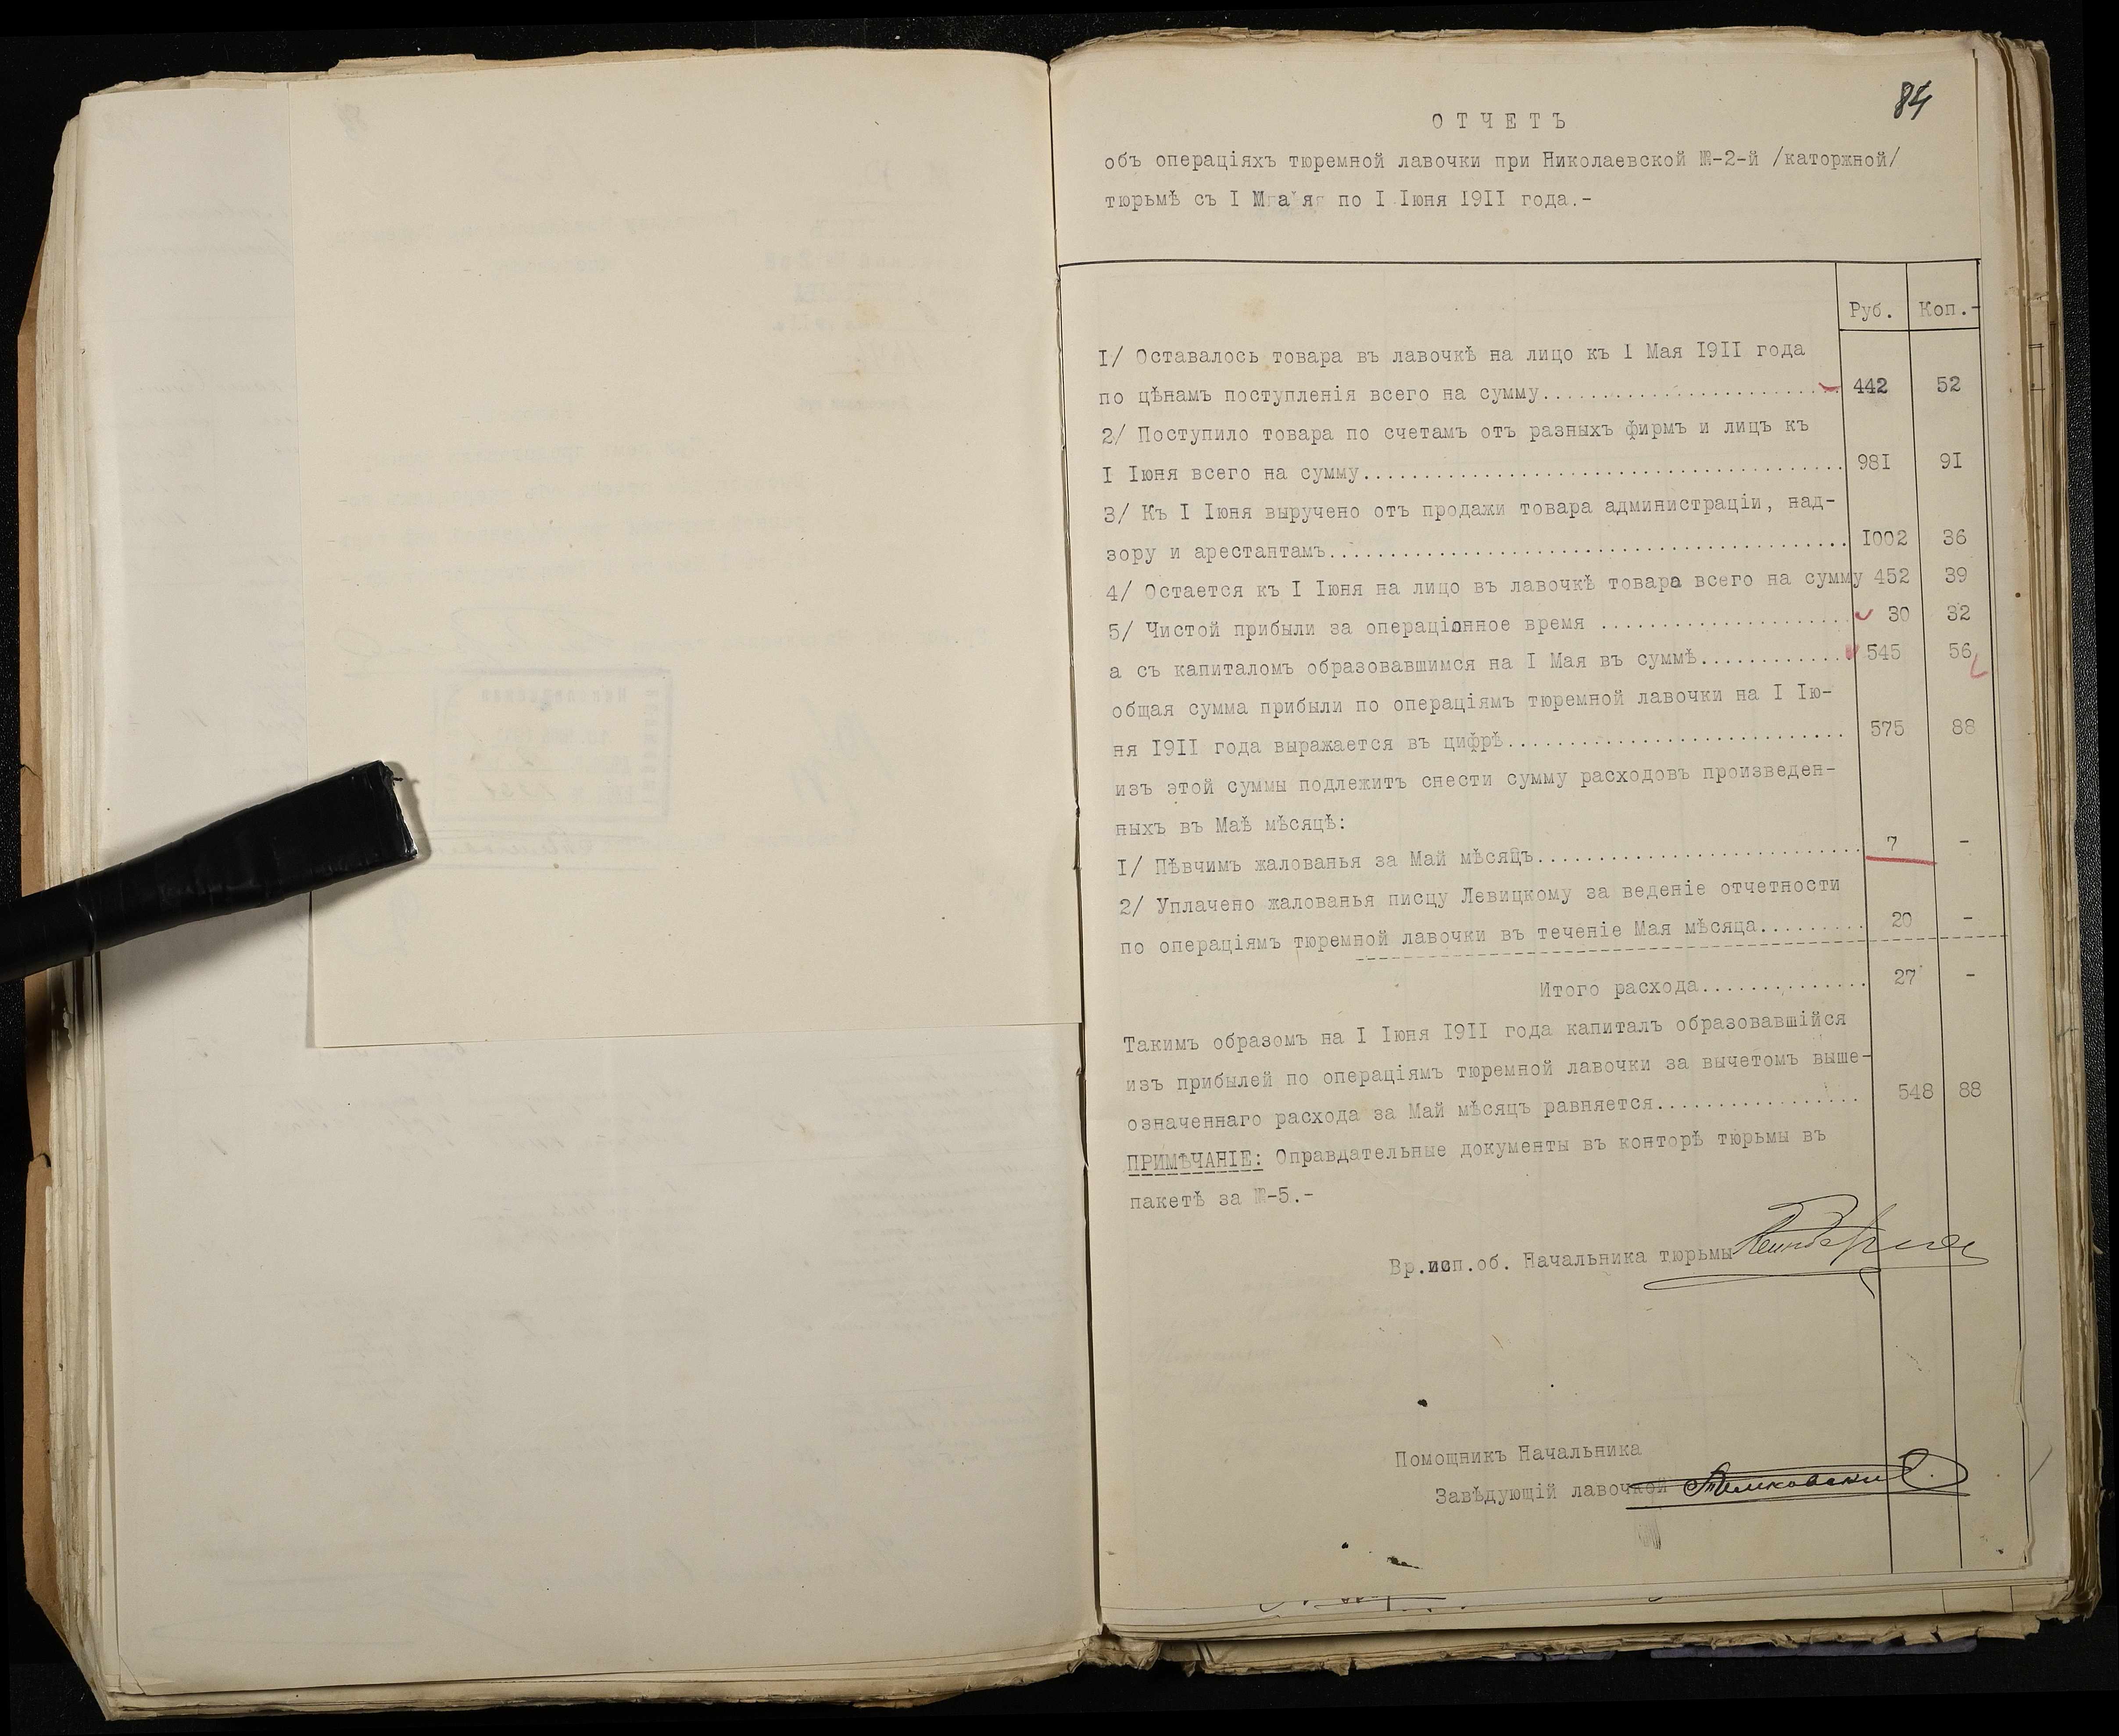 84
ОТЧЕТЪ
объ операціяхъ тюремной лавочки при Николаевской №-2-й /каторжной/
тюрьмѣ съ I Мая по I Іюня I9II года.-
Руб. Коп.-
I/ Оставалось товара въ лавочкѣ на лицо къ I Мая I9II года
по цѣнамъ поступленія всего на сумму........................ 442 52
2/ Поступило товара по счетамъ отъ разныхъ фирмъ и лицъ къ
I Іюня всего на сумму....................................... 98I 9I
3/ Къ I Іюня выручено отъ продажи товара администраціи, над-
зору и арестантамъ.......................................... I002 36
4/ Остается къ I Іюня на лицо въ лавочкѣ товара всего на сумму 452 39
5/ Чистой прибыли за операціонное время ..................... 30 32
а съ капиталомъ образовавшимся на I Мая въ суммѣ............ 545 56
общая сумма прибыли по операціямъ тюремной лавочки на I Ію-
ня I9II года выражается въ цифрѣ............................ 575 88
изъ этой суммы подлежитъ снести сумму расходовъ произведен-
ныхъ въ Маѣ мѣсяцѣ:
I/ Пѣвчимъ жалованья за Май мѣсяцъ........................... 7 -
2/ Уплачено жалованья писцу Левицкому за веденіе отчетности
по операціямъ тюремной лавочки въ теченіе Мая мѣсяца......... 20 -
Итого расхода.............. 27 -
Такимъ образомъ на I Іюня I9II года капиталъ образовавшійся
изъ прибылей по операціямъ тюремной лавочки за вычетомъ выше-
означеннаго расхода за Май мѣсяцъ равняется................. 548 88
ПРИМѢЧАНІЕ: Оправдательные документы въ конторѣ тюрьмы въ
пакетѣ за №-5.-
Вр.исп.об. Начальника тюрьмы
Помощникъ Начальника
Завѣдующій лавочкой